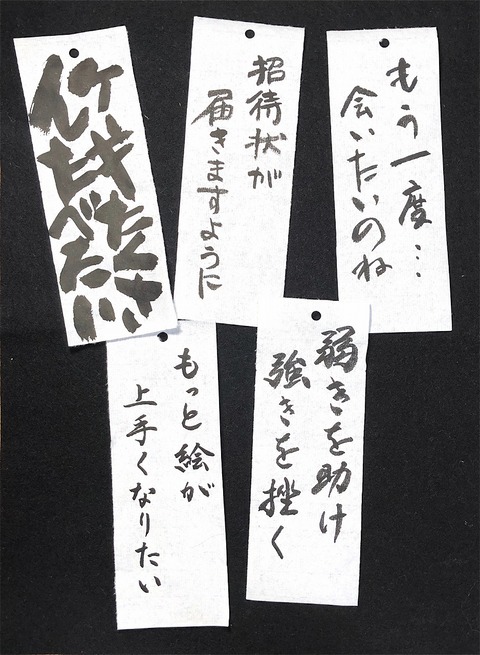 もう一度…
会いたいのね
招待状が
届きますように
ケーキたくさ
んたべたい
弱きを助け
強きを挫く
もっと絵が
上手くなりたい